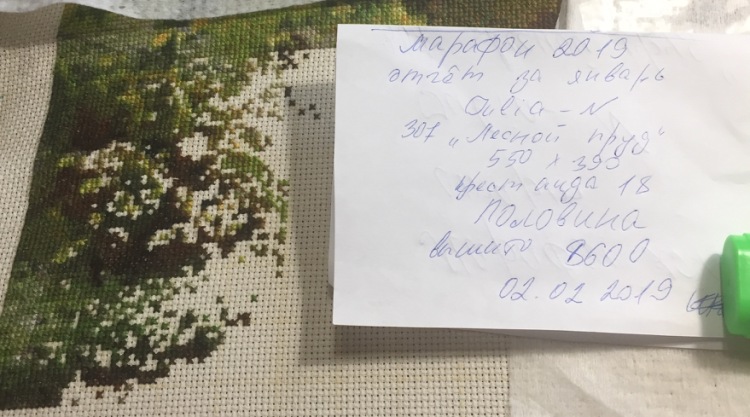 марафон 2019
отчёт за январь
Julia-N
307 „Лесной пруд"
550 x 390
крест аида 18
Половина
вышито 8600
02.02 2019